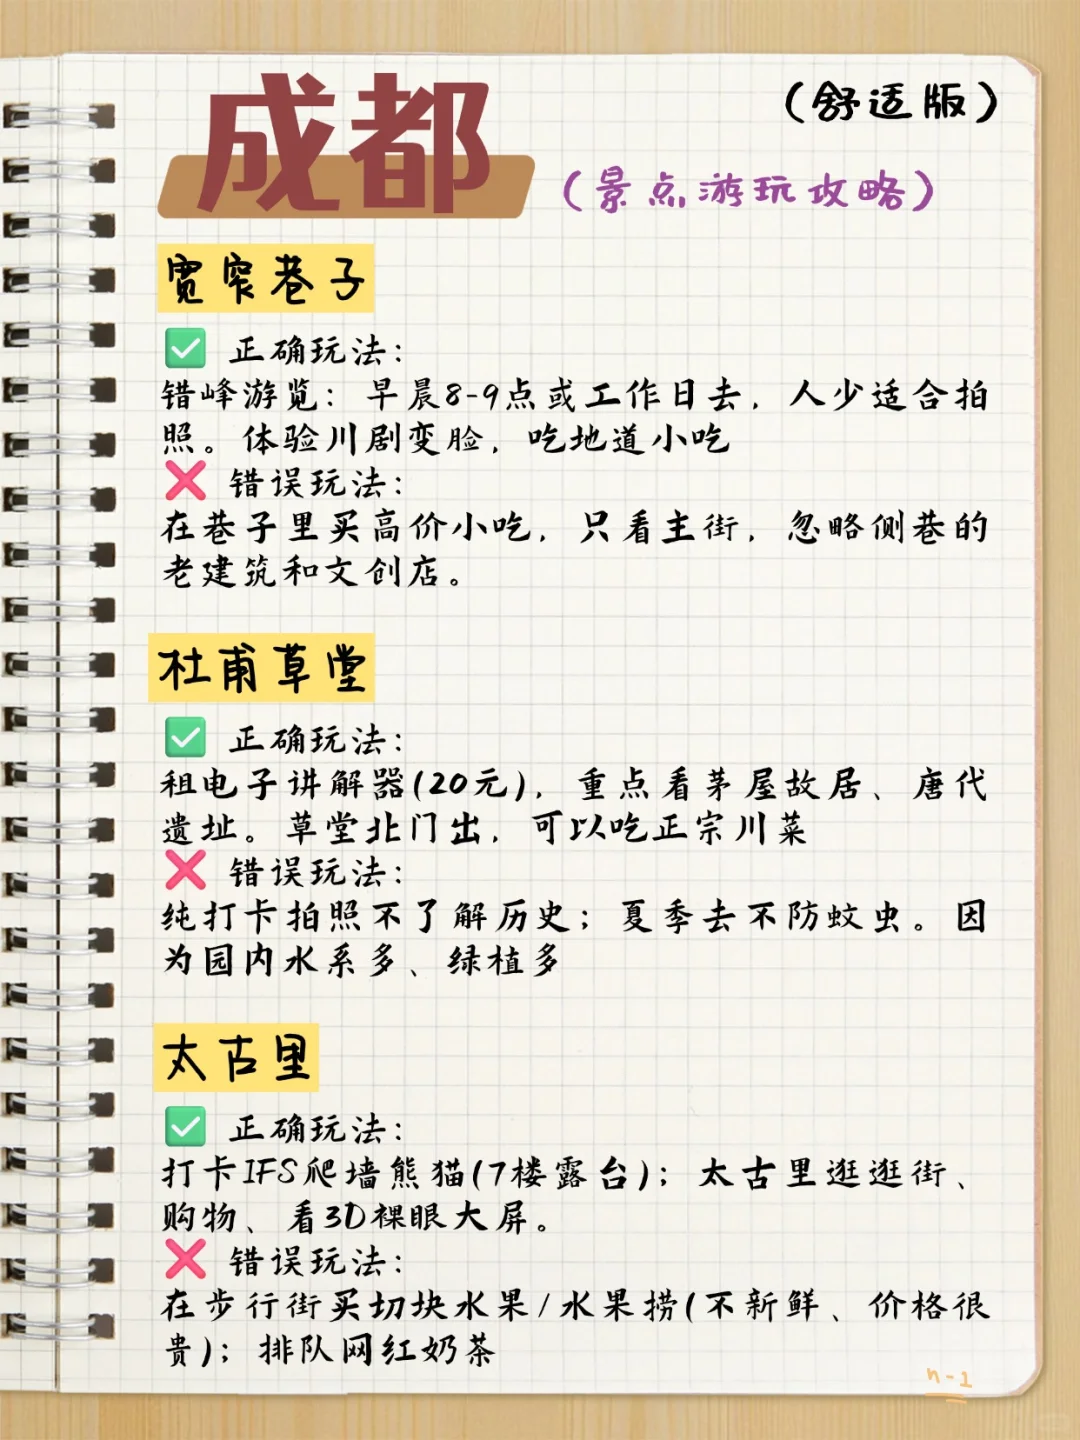 成都
(舒适版)
(景点游玩攻略)
宽窄巷子
✅ 正确玩法:
错峰游览: 早晨8-9点或工作日去, 人少适合拍
照。体验川剧变脸, 吃地道小吃
❌ 错误玩法:
在巷子里买高价小吃, 只看主街, 忽略侧巷的
老建筑和文创店。
杜甫草堂
✅ 正确玩法:
租电子讲解器(20元), 重点看茅屋故居、唐代
遗址。草堂北门出, 可以吃正宗川菜
❌ 错误玩法:
纯打卡拍照不了解历史; 夏季去不防蚊虫。因
为园内水系多、绿植多
太古里
✅ 正确玩法:
打卡IFS爬墙熊猫(7楼露台); 太古里逛逛街、
购物、看3D裸眼大屏。
❌ 错误玩法:
在步行街买切块水果/水果捞(不新鲜、价格很
贵); 排队网红奶茶
n-1